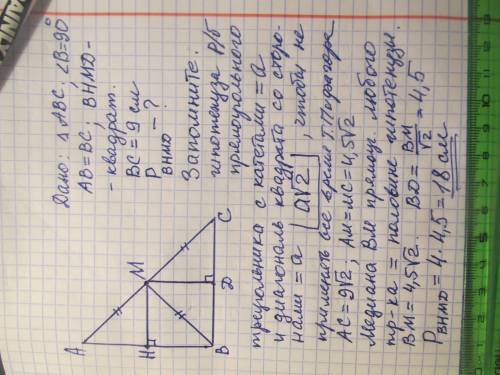 Дано: △ ABC, ∠B=90°
AB=BC; BHMD -
- квадрат.
BC = 9 см
P BHMD - ?
Запомните.
гипотенуза р/б
прямоугольного
треугольника с катетами = a
и диагональ квадрата со сторо-
нами = a | a√2 |, чтобы не
применять все время т. Пифагора
AC = 9√2; AM = MC = 4,5√2
Медиана BM прямоуг. любого
тр-ка = половине гипотенузы.
BM = 4,5√2. BD = BM/√2 = 4,5
P BHMD = 4 · 4,5 = 18 см
A
M
C
H
B
D